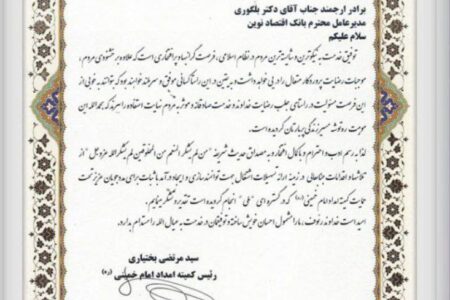 برادر ارجمند جناب آقای دکتر بلگوری
مدیرعامل محترم بانک اقتصاد نوین
سلام علیکم
توفیق خدمت به نیکوترین و شایسته‌ترین مردم در نظام اسلامی، فرصت گرانبها و پرافتخاری است که علاوه بر خشنودی مردم،
موجبات رضایت پروردگار متعال را در پی خواهد داشت و به یقین در این راستا کسانی موفق و سربلند خواهند بود که بتوانند به خوبی از
این فرصت مسئولیت در راستای جلب رضایت خداوند و خدمت صادقانه و موثر به مردم نهایت استفاده را ببرند که بحمدالله این
موهبت ره‌توشه مسیر زندگی پربارتان گردیده است.
لذا به رسم ادب و احترام و با کمال افتخار و به مصداق حدیث شریفه "من لم یشکر المنعم من المخلوقین لم یشکر الله عزوجل" از
تلاشها و اقدامات جنابعالی در زمینه ارائه تسهیلات اشتغال جهت توانمندسازی و ایجاد درآمد با ثبات برای مددجویان عزیز تحت
حمایت کمیته امداد امام خمینی (ره) که در گستره‌ای "ملی" انجام گردیده است تقدیر و تشکر می‌نمایم.
امید است خداوند رئوف، ما را مشمول احسان خویش ساخته و توفیقمان در خدمت به عیال الله را مستدام بدارد.
سید مرتضی بختیاری
رئیس کمیته امداد امام خمینی (ره)